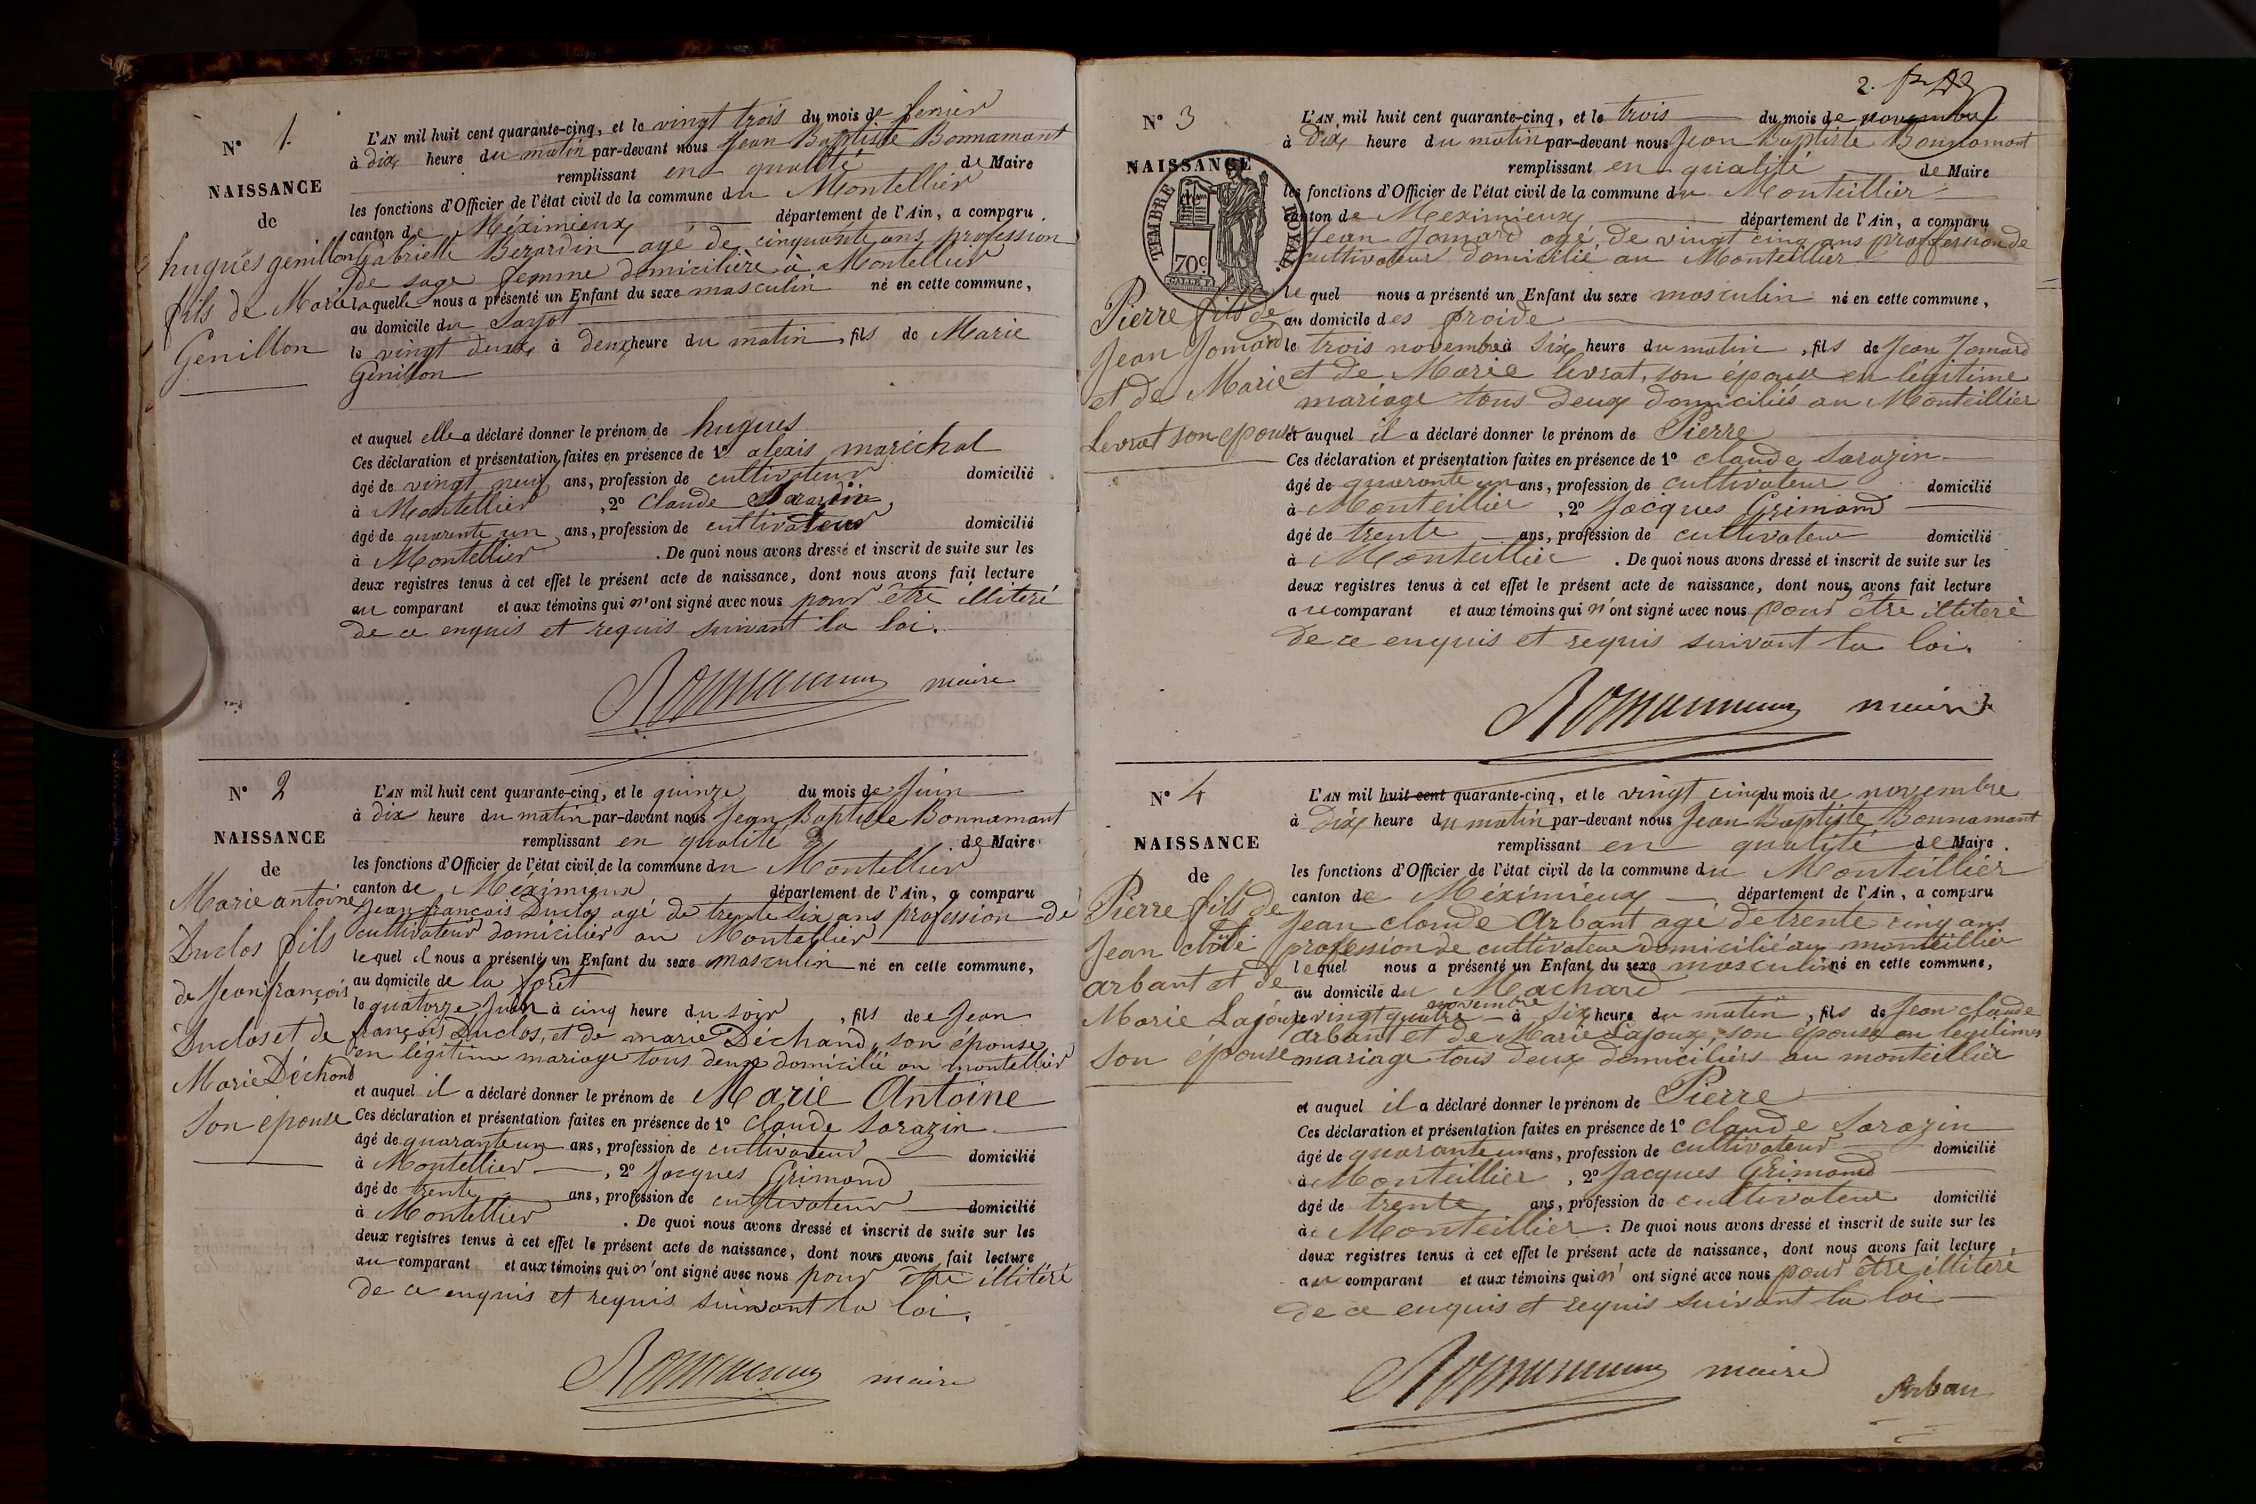 N° 1.
NAISSANCE
de
hugues genillon
fils de Marie
Genillon
L'AN mil huit cent quarante-cinq, et le vingt trois du mois de fevrier
à dix heure du matin par-devant nous Jean Baptiste Bonnamant
remplissant en qualité de Maire
les fonctions d'Officier de l'état civil de la commune du Montellier
canton de Méximieux département de l'Ain, a comparu
Gabrielle Berardin agé de cinquante ans profession
de sage femme domicilière à Montellier
laquelle nous a présenté un Enfant du sexe masculin né en cette commune,
au domicile du Sayot
le vingt deux à deux heure du matin, fils de Marie
Genillon
et auquel elle a déclaré donner le prénom de hugues
Ces déclaration et présentation faites en présence de 1° alexis maréchal
âgé de vingt neuf ans, profession de cultivateur domicilié
à Montellier, 2° Claude Sarazin
âgé de quarente un ans, profession de cultivateur domicilié
à Montellier. De quoi nous avons dressé et inscrit de suite sur les
deux registres tenus à cet effet le présent acte de naissance, dont nous avons fait lecture
au comparant et aux témoins qui n'ont signé avec nous pour être illiteré
de ce enquis et requis suivant la loi.
Bonnamant maire
N° 2
NAISSANCE
de
Marie antoine
Duclos fils
de Jean françois
Duclos et de
Marie Déchand
Son épouse
L'AN mil huit cent quarante-cinq, et le quinze du mois de Juin
à dix heure du matin par-devant nous Jean Baptiste Bonnamant
remplissant en qualité de Maire
les fonctions d'Officier de l'état civil de la commune du Montellier
canton de Méximieux département de l'Ain, a comparu
Jean françois Duclos agé de trente six ans profession de
cultivateur domicilier au Montellier
lequel il nous a présenté un Enfant du sexe masculin né en cette commune,
au domicile de la forêt
le quatorze Juin à cinq heure du soir, fils de Jean
françois Duclos, et de marie Déchand, son épouse
en légitime mariage tous deux domicilié au montellier
et auquel il a déclaré donner le prénom de Marie Antoine
Ces déclaration et présentation faites en présence de 1° Claude Sarazin
âgé de quarante un ans, profession de cultivateur domicilié
à Montellier, 2° Jacques Grimand
âgé de trente ans, profession de cultivateur domicilié
à Montellier. De quoi nous avons dressé et inscrit de suite sur les
deux registres tenus à cet effet le présent acte de naissance, dont nous avons fait lecture
au comparant et aux témoins qui n'ont signé avec nous pour être illitéré
de ce enquis et requis suivant la loi.
Bonnamant maire
2.
N° 3
NAISSANCE
de
TIMBRE ROYAL
70c
Pierre fils de
Jean Jomard
et de Marie
Levrat son epouse
L'AN mil huit cent quarante-cinq, et le trois du mois de novembre
à Dix heure du matin par-devant nous Jean Baptiste Bonnamant
remplissant en qualité de Maire
les fonctions d'Officier de l'état civil de la commune du Monteillier
canton de Meximieux département de l'Ain, a comparu
Jean Jomard agé, de vingt cinq ans proffession de
cultivateur domicilié au Monteillier
lequel nous a présenté un Enfant du sexe masculin né en cette commune,
au domicile des froide
le trois novembre à Six heure du matin, fils de Jean Jomard
et de Marie levrat, son épouse en légitime
mariage tous deux domiciliés au Monteillier
et auquel il a déclaré donner le prénom de Pierre
Ces déclaration et présentation faites en présence de 1° claude Sarazin
âgé de quarante un ans, profession de cultivateur domicilié
à Monteillier, 2° Jacques Grimand
âgé de trente ans, profession de cultivateur domicilié
à Monteillier. De quoi nous avons dressé et inscrit de suite sur les
deux registres tenus à cet effet le présent acte de naissance, dont nous avons fait lecture
au comparant et aux témoins qui n'ont signé avec nous pour être illiteré
de ce enquis et requis suivant la loi.
Bonnamant maire
N° 4
NAISSANCE
de
Pierre fils de
Jean clode
arbant et de
Marie Lajoux
Son épouse
L'AN mil huit cent quarante-cinq, et le vingt cinq du mois de novembre
à Dix heure du matin par-devant nous Jean Baptiste Bonnamant
remplissant en qualité de Maire.
les fonctions d'Officier de l'état civil de la commune du Monteillier
canton de Méximieux département de l'Ain, a comparu
Jean claude Arbant agé de trente cinq ans
profession de cultivateur domicilié au monteillier
lequel nous a présenté un Enfant du sexe masculin né en cette commune,
au domicile du Machard
le vingt quatre novembre à Six heure du matin, fils de Jean claude
arbant et de Marie Lajoux, son épouse en legitime
mariage tous deux domiciliérs au monteillier
et auquel il a déclaré donner le prénom de Pierre
Ces déclaration et présentation faites en présence de 1° claude Sarazin
âgé de quarante un ans, profession de cultivateur domicilié
à Monteillier, 2° Jacques Grimand
âgé de trente ans, profession de cultivateur domicilié
à Monteillier. De quoi nous avons dressé et inscrit de suite sur les
deux registres tenus à cet effet le présent acte de naissance, dont nous avons fait lecture
au comparant et aux témoins qui n'ont signé avec nous pour être illiteré
de ce enquis et requis suivant la loi
Bonnamant maire
Arban